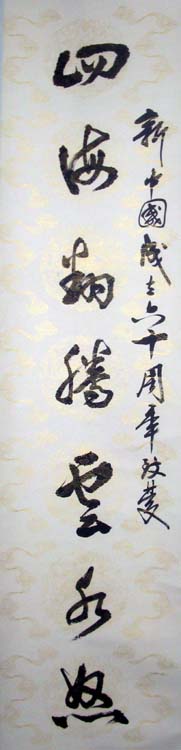 新中國成立六十周年致慶
四海翻騰雲水怒